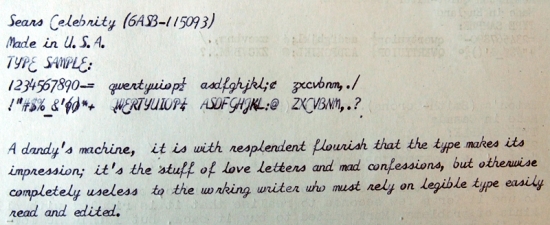 Sears Celebrity (6ASB-115093)
Made in U.S.A.
TYPE SAMPLE:
1234567890-= qwertyuiop½ asdfghjkl;¢ zxcvbnm,./
!"#$%_&'()*+ QWERTYUIOP¼ ASDFGHJKL:@ ZXCVBNM,.?
A dandy's machine, it is with resplendent flourish that the type makes its
impression; it's the stuff of love letters and mad confessions, but otherwise
completely useless to the working writer who must rely on legible type easily
read and edited.